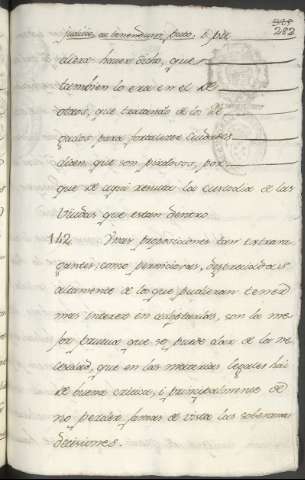 282
diera haver dicho, que
tambien lo era en el de
otros, que tratando de lo De
gados para fortalecer Ciudades
dicen que son piadosos, por
que de aqui resulta la custodia de las
Viudas que estan dentro
142. Unas proposiciones tan extrava
gantes, como perniciosas, despreciadas
altamente de los que pudieran tener
mas interes en adoptarlas, son la me
jor prueva que se puede dar de la ne
cesidad, que en las materias legales hai
de buena critica, i principalmente de
no perder jamas de vista las soberanas
decisiones.